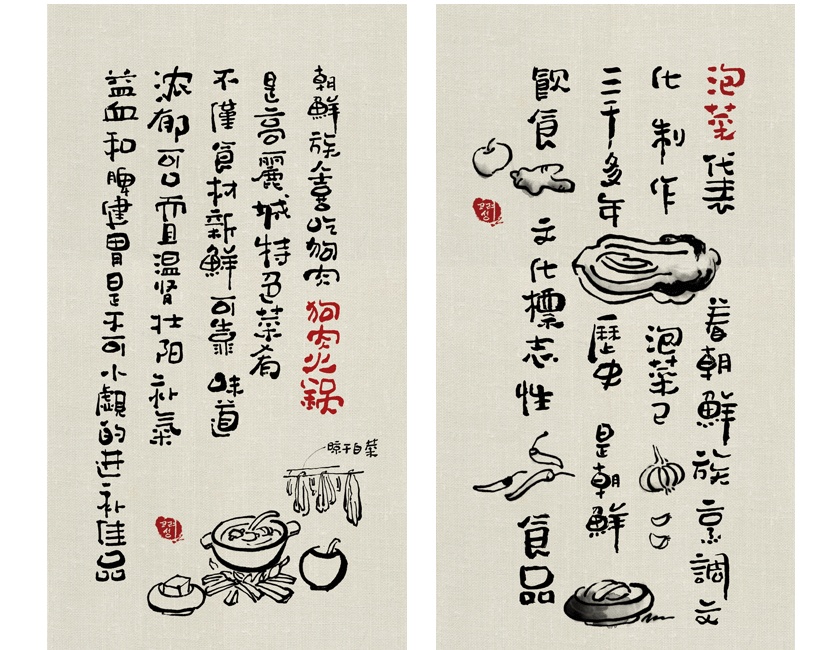 朝鮮族喜吃狗肉狗肉火鍋
是高麗城特色菜肴
不僅食材新鮮可靠味道
浓郁可口而且温肾壮阳补氣
益血和脾健胃是不可小覷的进补佳品
晾干白菜
고려성
泡菜代表着朝鮮族烹調文
化制作泡菜已
三千多年歷史是朝鮮
飲食文化標志性食品
고려성